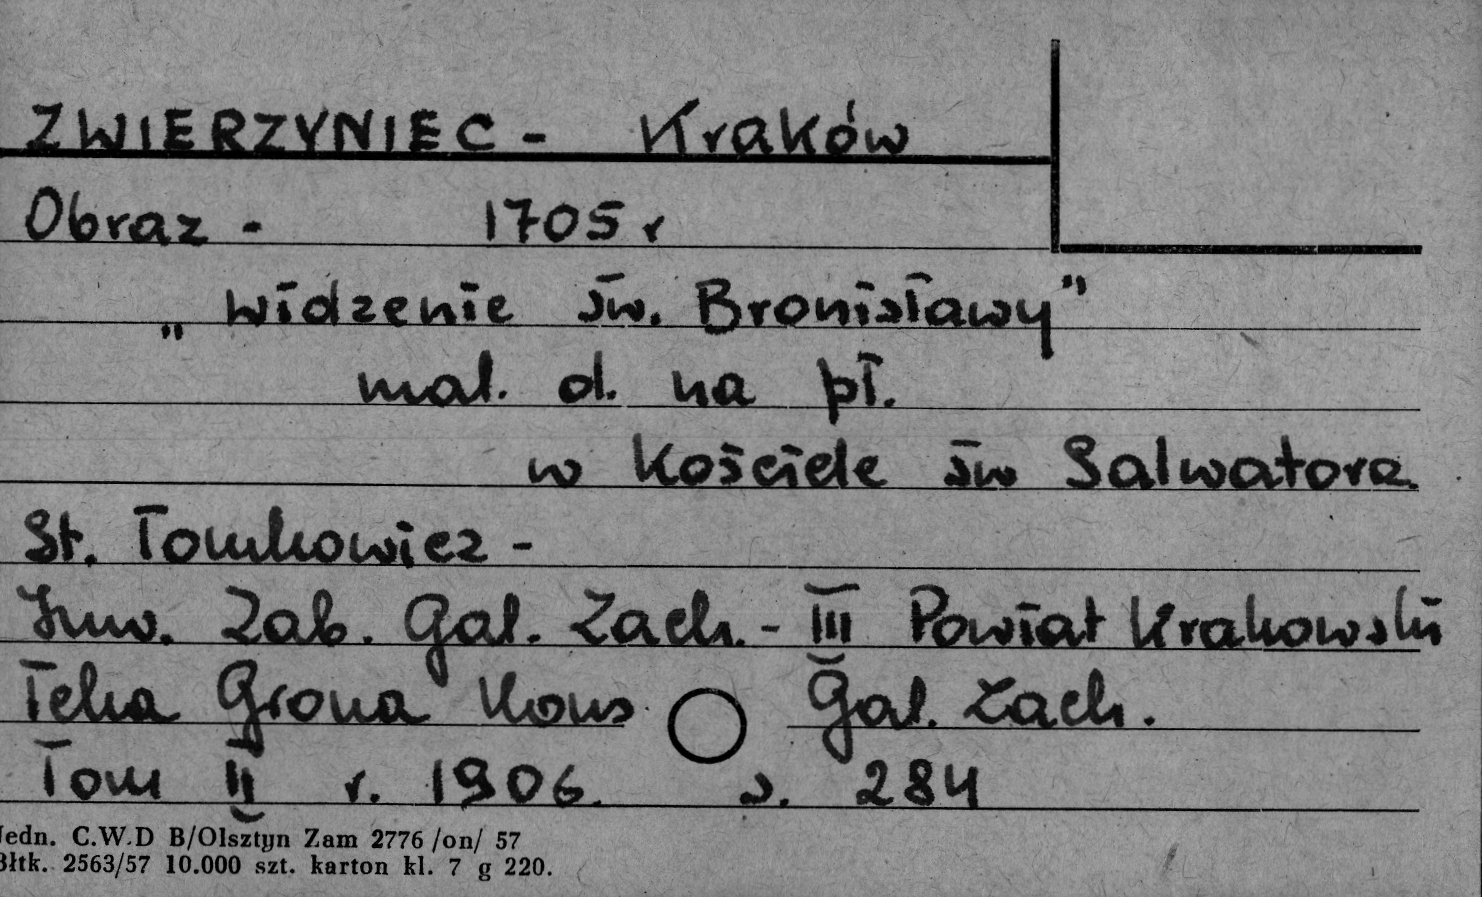 ZWIERZYNIEC - Kraków
Obraz - 1705 r
„widzenie św. Bronisławy”
mal. ol. na pł.
w Kościele św Salwatora.
St. Tomkowicz -
Inw. Zab. Gal. Zach. - III Powiat Krakowski
Teka Grona Kons. Gal. Zach.
Tom II r. 1906. s. 284
Jedn. C.W.D B/Olsztyn Zam 2776 /on/ 57
Błtk. 2563/57 10.000 szt. karton kl. 7 g 220.